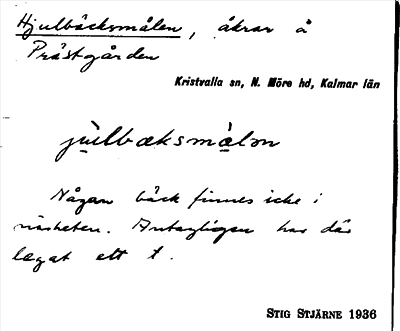 Hjulbäcksmålen, åkrar å
Prästgården
Kristvalla sn, N. Möre hd, Kalmar län
julbæksmålon
Någon bäck finnes icke i
närheten. Antagligen har där
legat ett t.
STIG STJÄRNE 1936